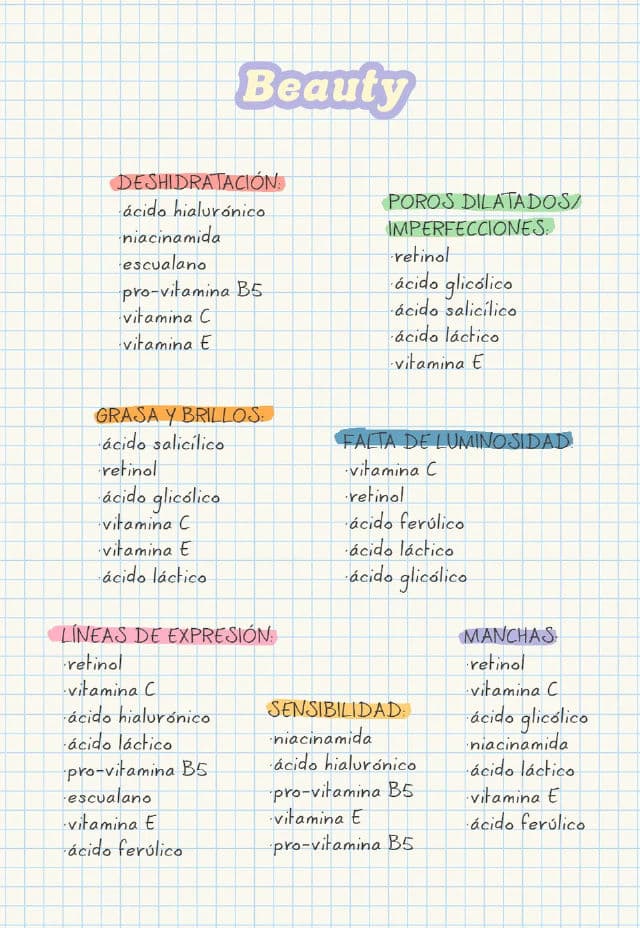 Beauty
DESHIDRATACIÓN:
·ácido hialurónico
·niacinamida
·escualano
·pro-vitamina B5
·vitamina C
·vitamina E
POROS DILATADOS/
IMPERFECCIONES:
·retinol
·ácido glicólico
·ácido salicílico
·ácido láctico
·vitamina E
GRASA Y BRILLOS:
·ácido salicílico
·retinol
·ácido glicólico
·vitamina C
·vitamina E
·ácido láctico
FALTA DE LUMINOSIDAD:
·vitamina C
·retinol
·ácido ferúlico
·ácido láctico
·ácido glicólico
LÍNEAS DE EXPRESIÓN:
·retinol
·vitamina C
·ácido hialurónico
·ácido láctico
·pro-vitamina B5
·escualano
·vitamina E
·ácido ferúlico
SENSIBILIDAD:
·niacinamida
·ácido hialurónico
·pro-vitamina B5
·vitamina E
·pro-vitamina B5
MANCHAS:
·retinol
·vitamina C
·ácido glicólico
·niacinamida
·ácido láctico
·vitamina E
·ácido ferúlico